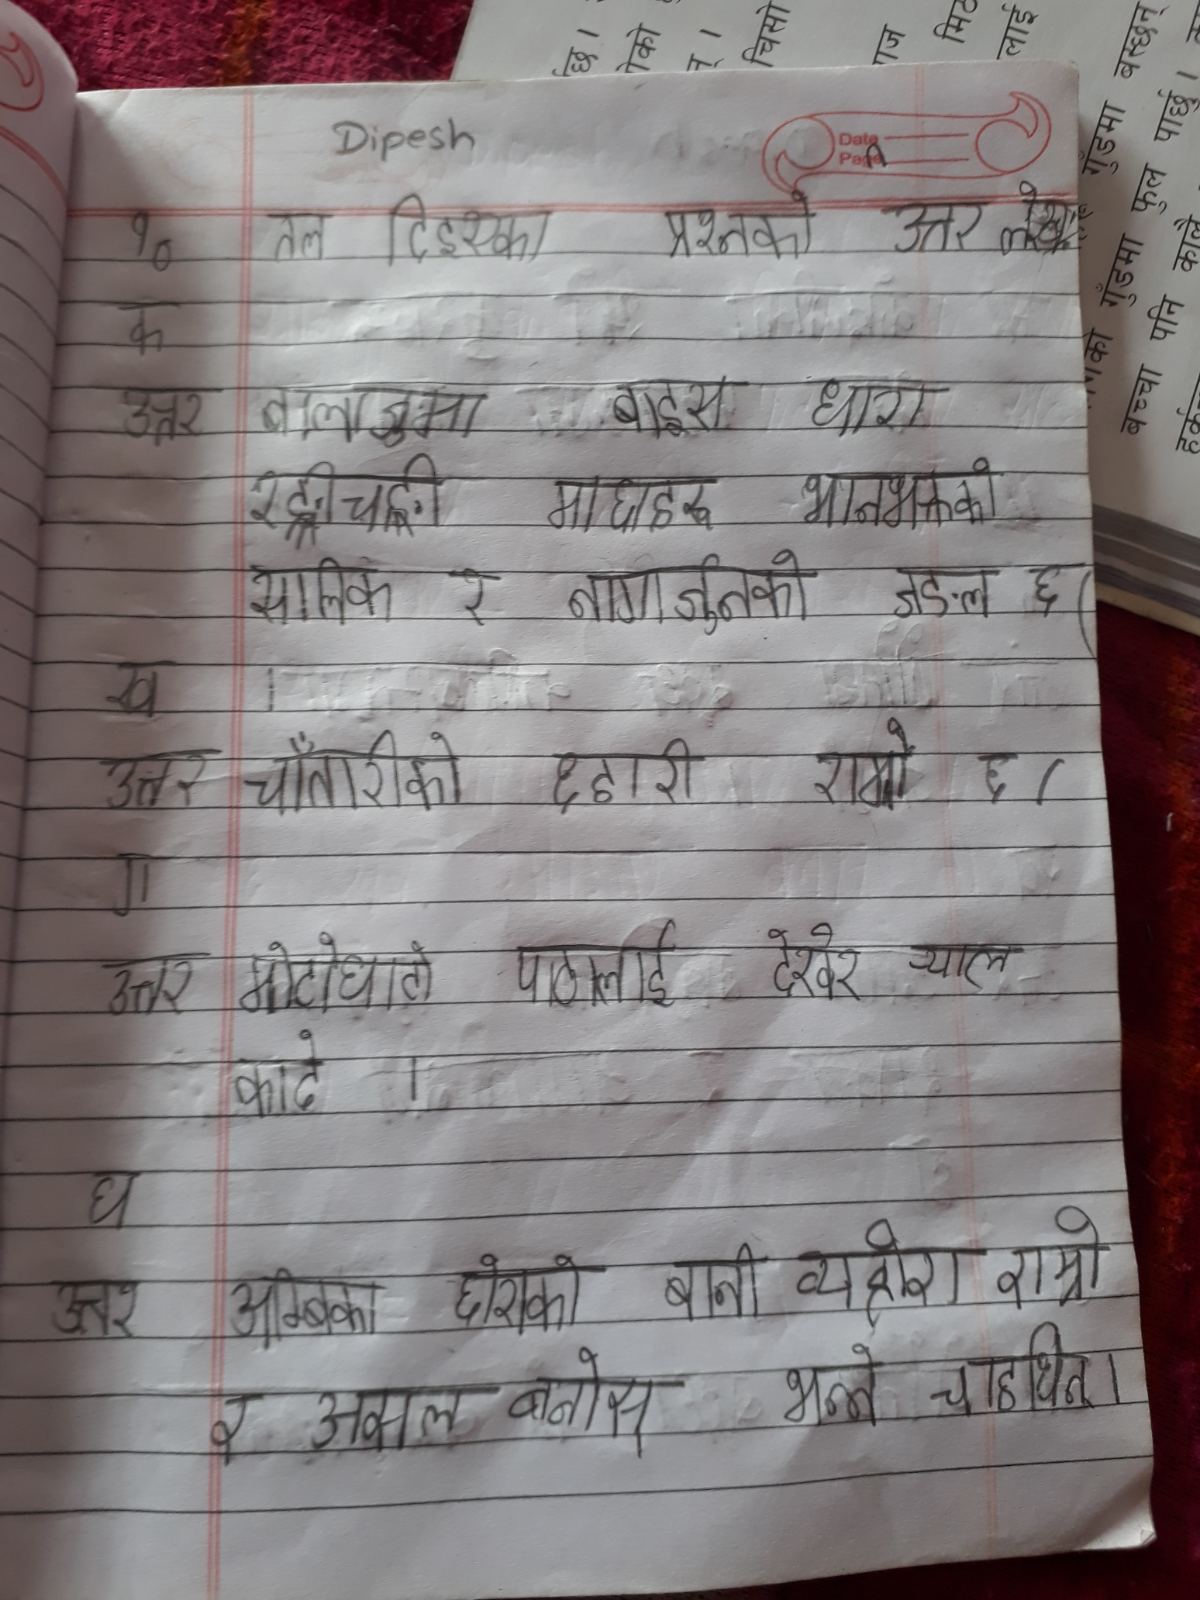 Dipesh
Date
Page
१० तल दिइएका प्रश्नको उत्तर
क
उत्तर बालाजुमा बाइस धारा
रङ्गीचङ्गी माछाहरु भानभक्तको
सालिक र नागार्जुनको जङल छ।
ख
उत्तर चौंतारीको छहारी राम्रो छ।
ग
उत्तर मोटोघाटो पाठालाई देखेर च्याल
काढे ।
घ
उत्तर अम्बिका छोराको बानी व्यहोरा राम्रो
र असल बनोस् भन्ने चाहथिन्।
छ।
चिसो
लाई
गुँडमा बस्छन्
गुँडमा फुल पार्छु।
बच्चा पनि कालै